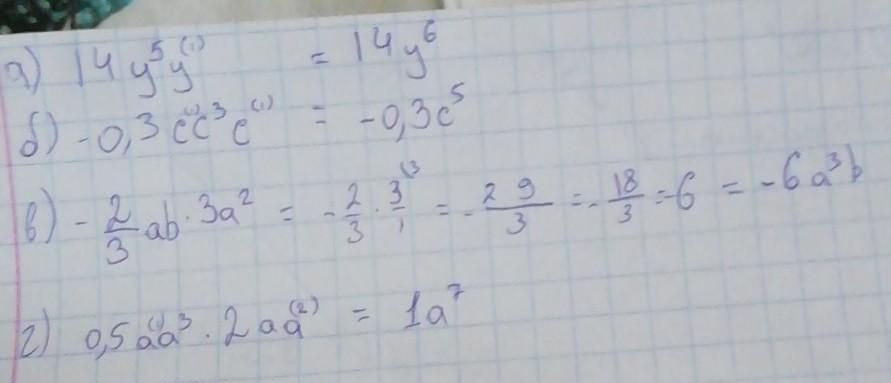 а) 14y⁵y⁽¹⁾ = 14y⁶
б) -0,3c⁽¹⁾c³c⁽¹⁾ = -0,3c⁵
в) -2/3 ab · 3a² = -2/3 · 3/1 ⁽³ = - 2 9/3 = - 18/3 = -6 = -6a³b
г) 0,5a⁽¹⁾a³ · 2aa⁽²⁾ = 1a⁷